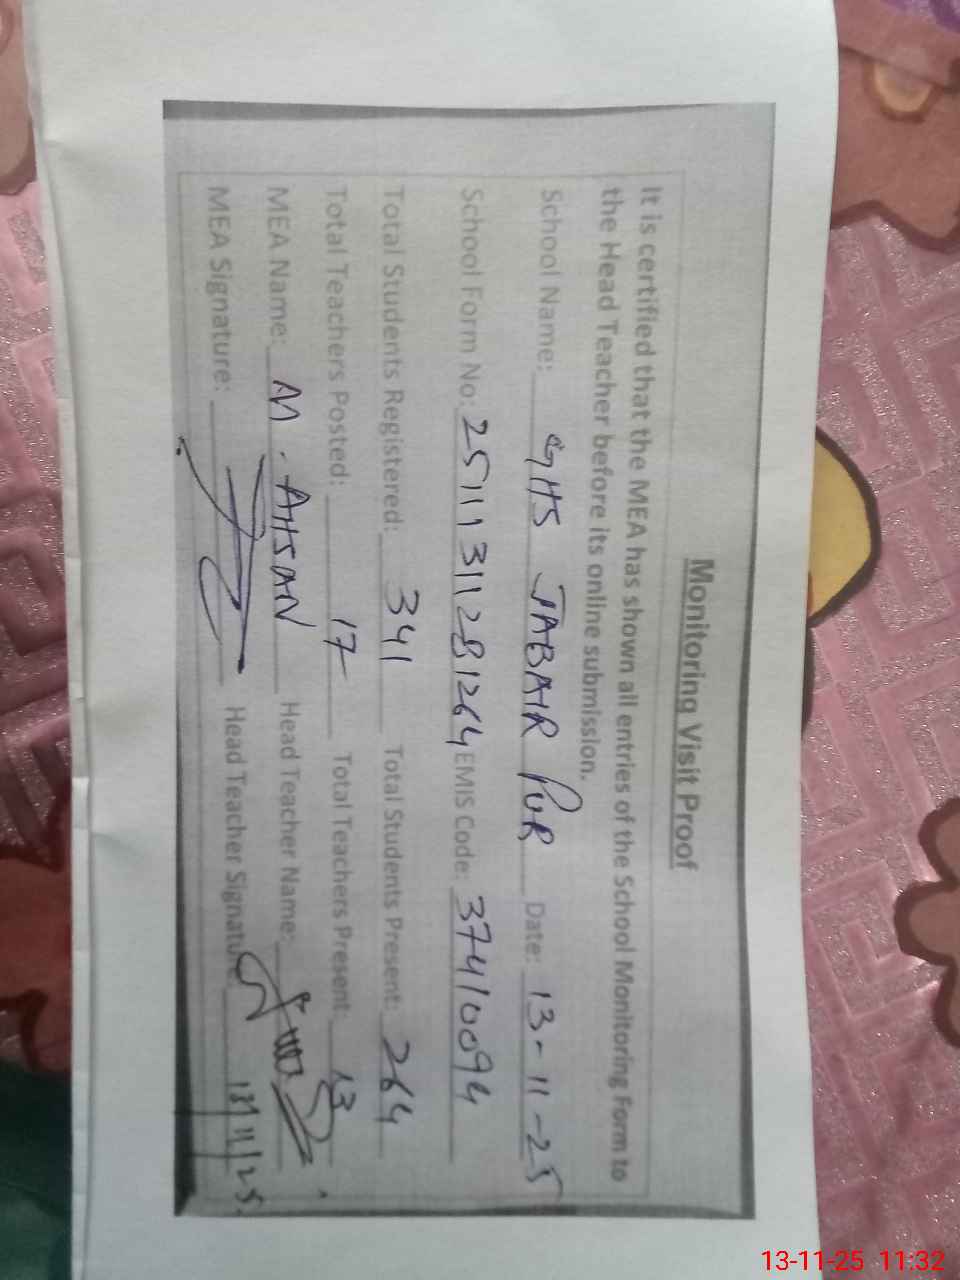 Monitoring Visit Proof
It is certified that the MEA has shown all entries of the School Monitoring Form to
the Head Teacher before its online submission.
School Name: GHS JABAIR PUR Date: 13-11-25
School Form No: 25111311281264 EMIS Code: 37410094
Total Students Registered: 341 Total Students Present: 264
Total Teachers Posted: 17 Total Teachers Present: 13
MEA Name: M. AHSAN Head Teacher Name:
MEA Signature: Head Teacher Signature 13/11/25.
13-11-25 11:32